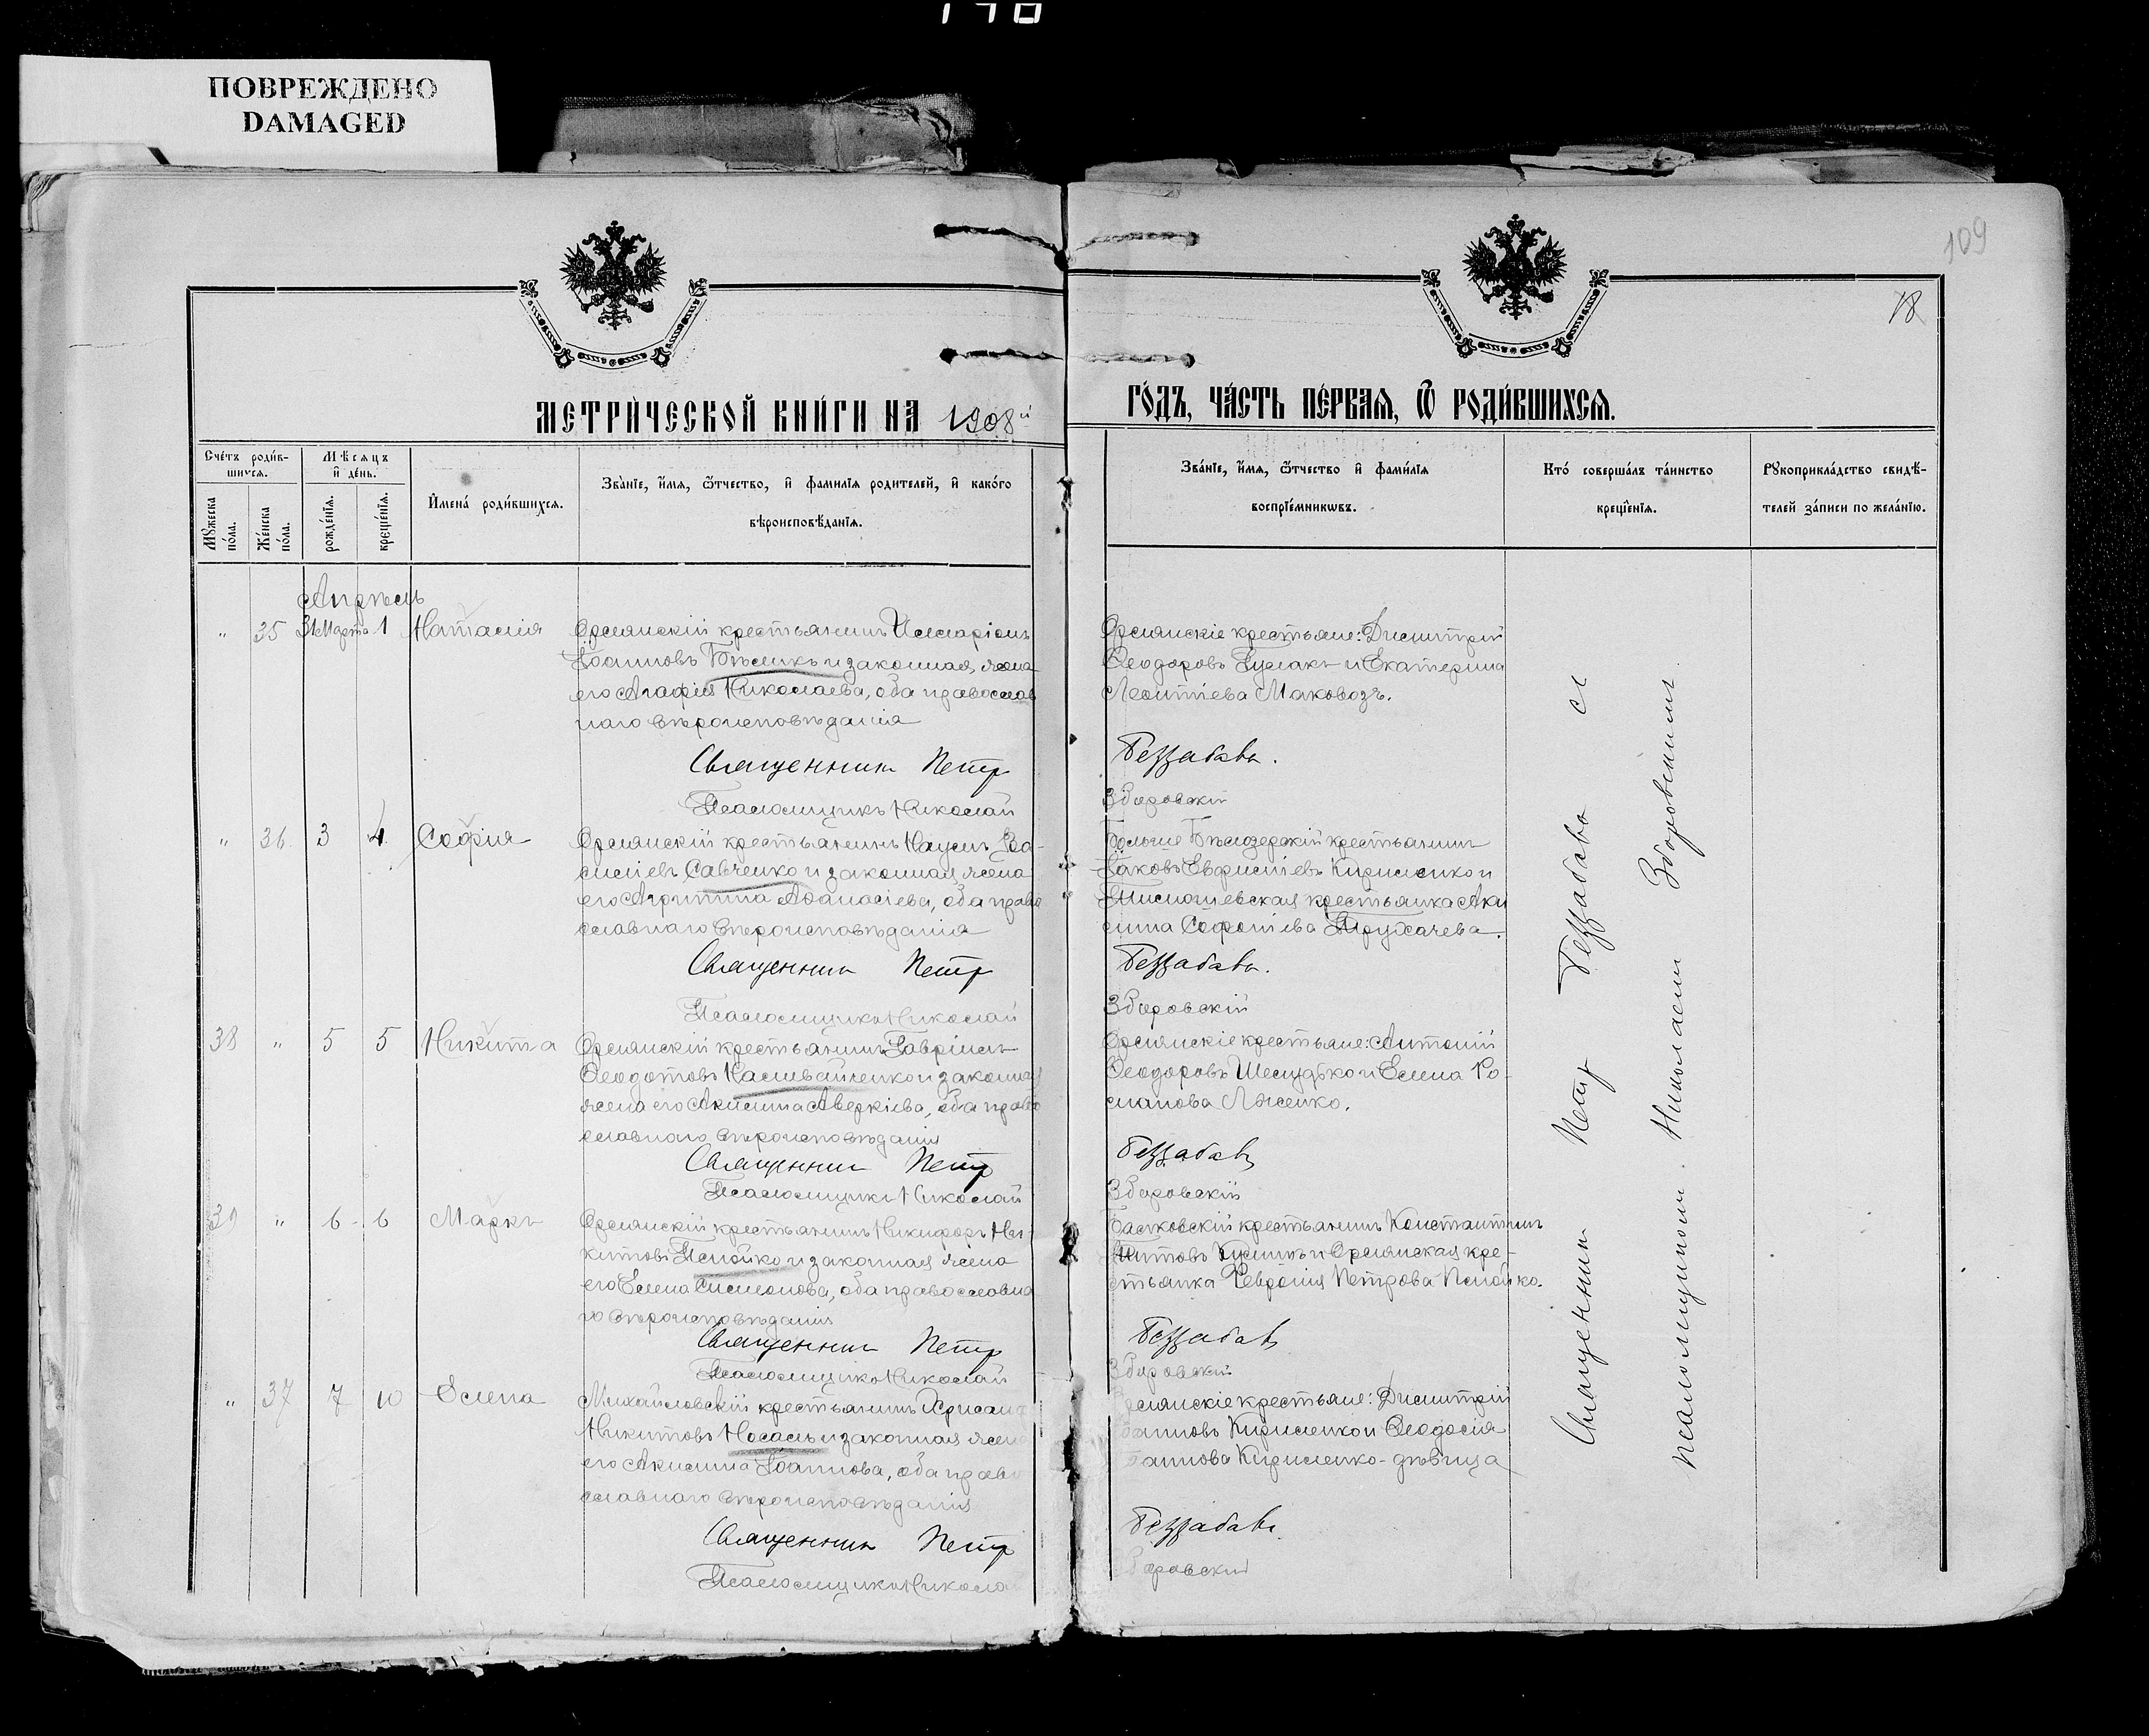 ПОВРЕЖДЕНО
DAMAGED
109
18
МЕТРИЧЕСКОЙ КНИГИ НА 1908й
ГОДЪ, ЧАСТЬ ПЕРВАЯ, Ѿ РОДИВШИХСЯ.
Счетъ родив-
шихся.
Мужеска пола.
Женска пола.
Мѣсяцъ и день.
рожденія.
крещенія.
Имена родившихся.
Званіе, имя, ѿтчество, и фамилія родителей, и какого
вѣроисповѣданія.
Званіе, имя, ѿтчество и фамилія
воспріемникѡвъ.
Кто совершалъ таинство
крещенія.
Рукоприкладство свидѣ-
телей записи по желанію.
Апрѣль
" 35 31 Марта 1 Наталія
Орлянскій крестьянинъ Илларіонъ
Іоанновъ Бѣликъ и законная жена
его Агафія Николаева, оба православ
наго вѣроисповѣданія
Священникъ Петръ
Псаломщикъ Николай
Орлянскіе крестьяне: Димитрій
Ѳеодоровъ Гулакъ и Екатерина
Леонтіева Маковозъ.
Беззабавъ.
Зборовскій
" 36 3 4 Софія
Орлянскій крестьянинъ Наумъ Ва-
силіевъ Савченко и законная жена
его Агриппина Аѳанасіева, оба право
славнаго вѣроисповѣданія
Священникъ Петръ
Псаломщикъ Николай
Больше Бѣлозерскій крестьянинъ
Іаковъ Евфиміевъ Кириленко и
крестьянка Аки
лина Трухачева.
Беззабавъ.
Зборовскій
38 " 5 5 Никита
Орлянскій крестьянинъ Гавріилъ
Ѳеодотовъ Наливайченко и законная
жена его Акилина Аверкіева, оба право
славнаго вѣроисповѣданія
Священникъ Петръ
Псаломщикъ Николай
Орлянскіе крестьяне: Антоній
Ѳеодоровъ Шелудько и Елена Ро-
манова Ляшенко.
Беззабавъ
Зборовскій
39 " 6 6 Маркъ
Орлянскій крестьянинъ Никифоръ Ни-
китовъ Псіойко и законная жена
его Елена Симеонова, оба православна
го вѣроисповѣданія
Священникъ Петръ
Псаломщикъ Николай
Балковскій крестьянинъ Константинъ
Титовъ и Орлянская кре-
стьянка Февронія Петрова
Беззабавъ
Зборовскій
" 37 7 10 Елена
Михайловскій крестьянинъ Хрисанѳ
Никитовъ Носаль и законная жена
его Акилина Іоаннова, оба право
славнаго вѣроисповѣданія
Священникъ Петръ
Псаломщикъ Никола
рлянскіе крестьяне: Димитрій
оанновъ Кириленко и Ѳеодосія
оаннова Кириленко - дѣвица
Беззабавъ.
боровскій
Священникъ Петръ Беззабава съ
псаломщикомъ Николаемъ Зборовскимъ.